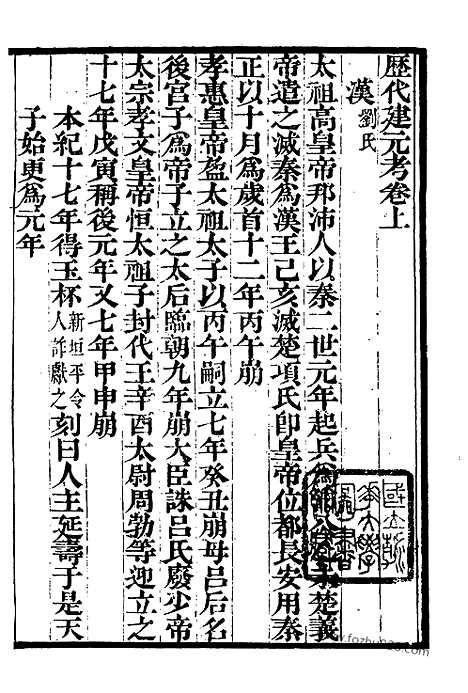 歷代建元考卷上
漢劉氏
太祖高皇帝邦沛人以秦二世元年起兵爲沛公楚義
帝遣之滅秦爲漢王己亥滅楚項氏卽皇帝位都長安用秦
正以十月爲歲首十二年丙午崩
孝惠皇帝盈太祖太子以丙午嗣立七年癸丑崩母呂后名
後宮子爲帝子立之太后臨朝九年崩大臣誅呂氏廢少帝
太宗孝文皇帝恒太祖子封代王辛酉太尉周勃等迎立之
十七年戊寅稱後元年又七年甲申崩
本紀十七年得玉杯新垣平令人詐獻之刻曰人主延壽于是天
子始更爲元年
www.fozhu920.com